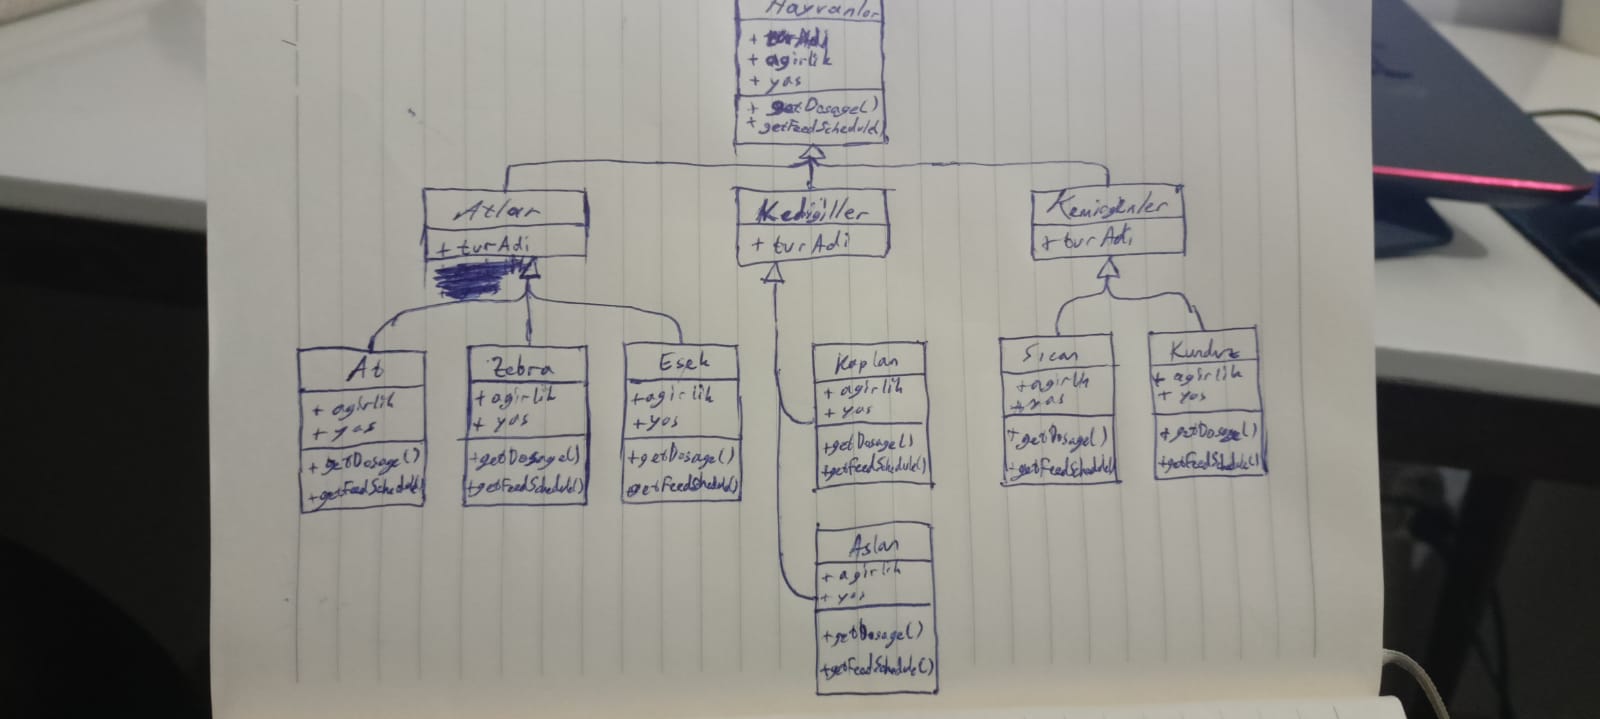 Hayvanlar
+ turAdi
+ agirlik
+ yas
+ getDosage()
+ getFeedSchedule()
Atlar
+ turAdi
Kedigiller
+ turAdi
Kemirgenler
+ turAdi
At
+ agirlik
+ yas
+ getDosage()
+getFeedSchedule()
Zebra
+agirlik
+ yas
+getDosage()
+getFeedSchedule()
Esek
+agirlik
+yas
+getDosage()
getFeedSchedule()
Kaplan
+ agirlik
+ yas
+getDosage()
+getFeedSchedule()
Sican
+agirlik
+yas
+getDosage()
+getFeedSchedule()
Kunduz
+ agirlik
+ yas
+getDosage()
+getFeedSchedule()
Aslan
+ agirlik
+ yas
+getDosage()
+getFeedSchedule()